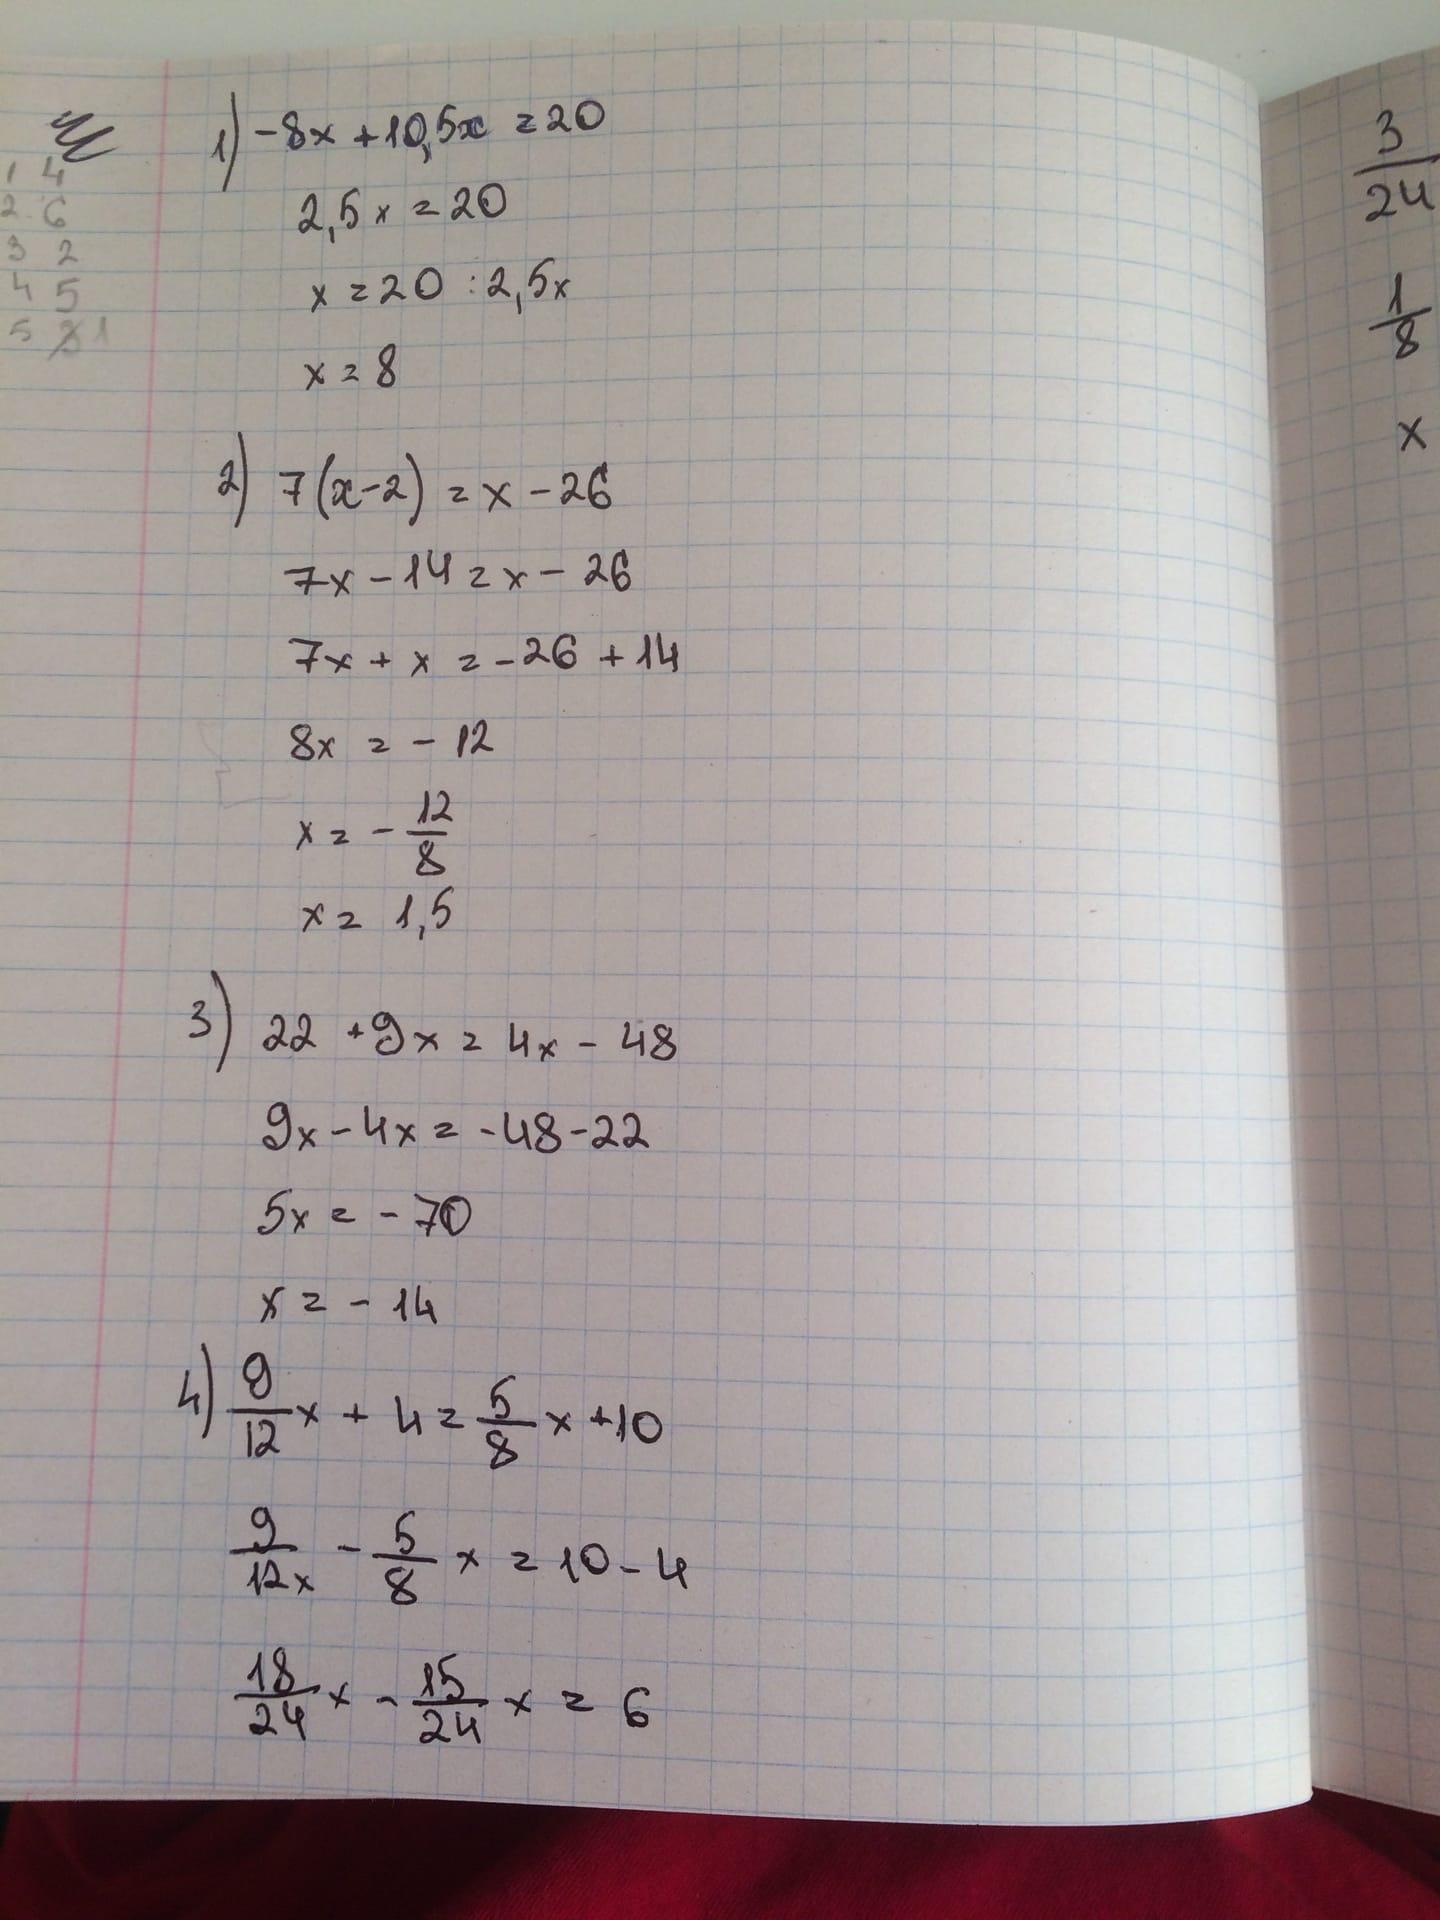 1 4
2. 6
3 2
4 5
5 1
1) -8x + 10,5x = 20
2,5x = 20
x = 20 : 2,5x
x = 8
2) 7(x-2) = x - 26
7x - 14 = x - 26
7x + x = -26 + 14
8x = - 12
x = - 12/8
x = 1,5
3) 22 + 9x = 4x - 48
9x - 4x = -48 - 22
5x = - 70
x = - 14
4) 9/12 x + 4 = 5/8 x + 10
9/12x - 5/8 x = 10 - 4
18/24 x - 15/24 x = 6
3/24
1/8
x